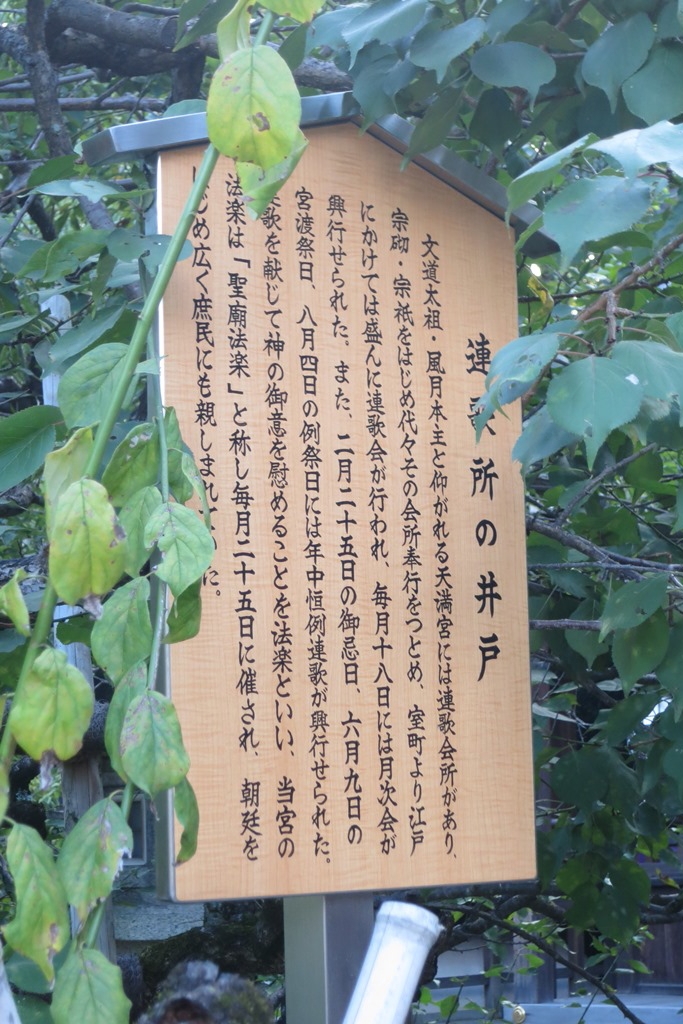 連歌所の井戸
文道太祖・風月本主と仰がれる天満宮には連歌会所があり、
宗砌・宗祇をはじめ代々その会所奉行をつとめ、室町より江戸
にかけては盛んに連歌会が行われ、毎月十八日には月次会が
興行せられた。また、二月二十五日の御忌日、六月九日の
宮渡祭日、八月四日の例祭日には年中恒例連歌が興行せられた。
歌を献じて神の御意を慰めることを法楽といい、当宮の
法楽は「聖廟法楽」と称し毎月二十五日に催され、朝廷を
じめ広く庶民にも親しまれていた。